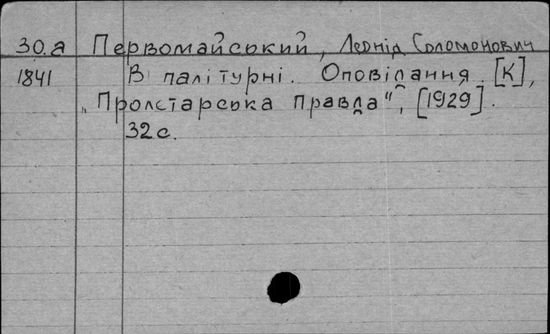 30.а Первомайський, Леонід Соломонович
1841 В палітурні. Оповідання. [К],
„Пролєтарська правда", [1929].
32 с.